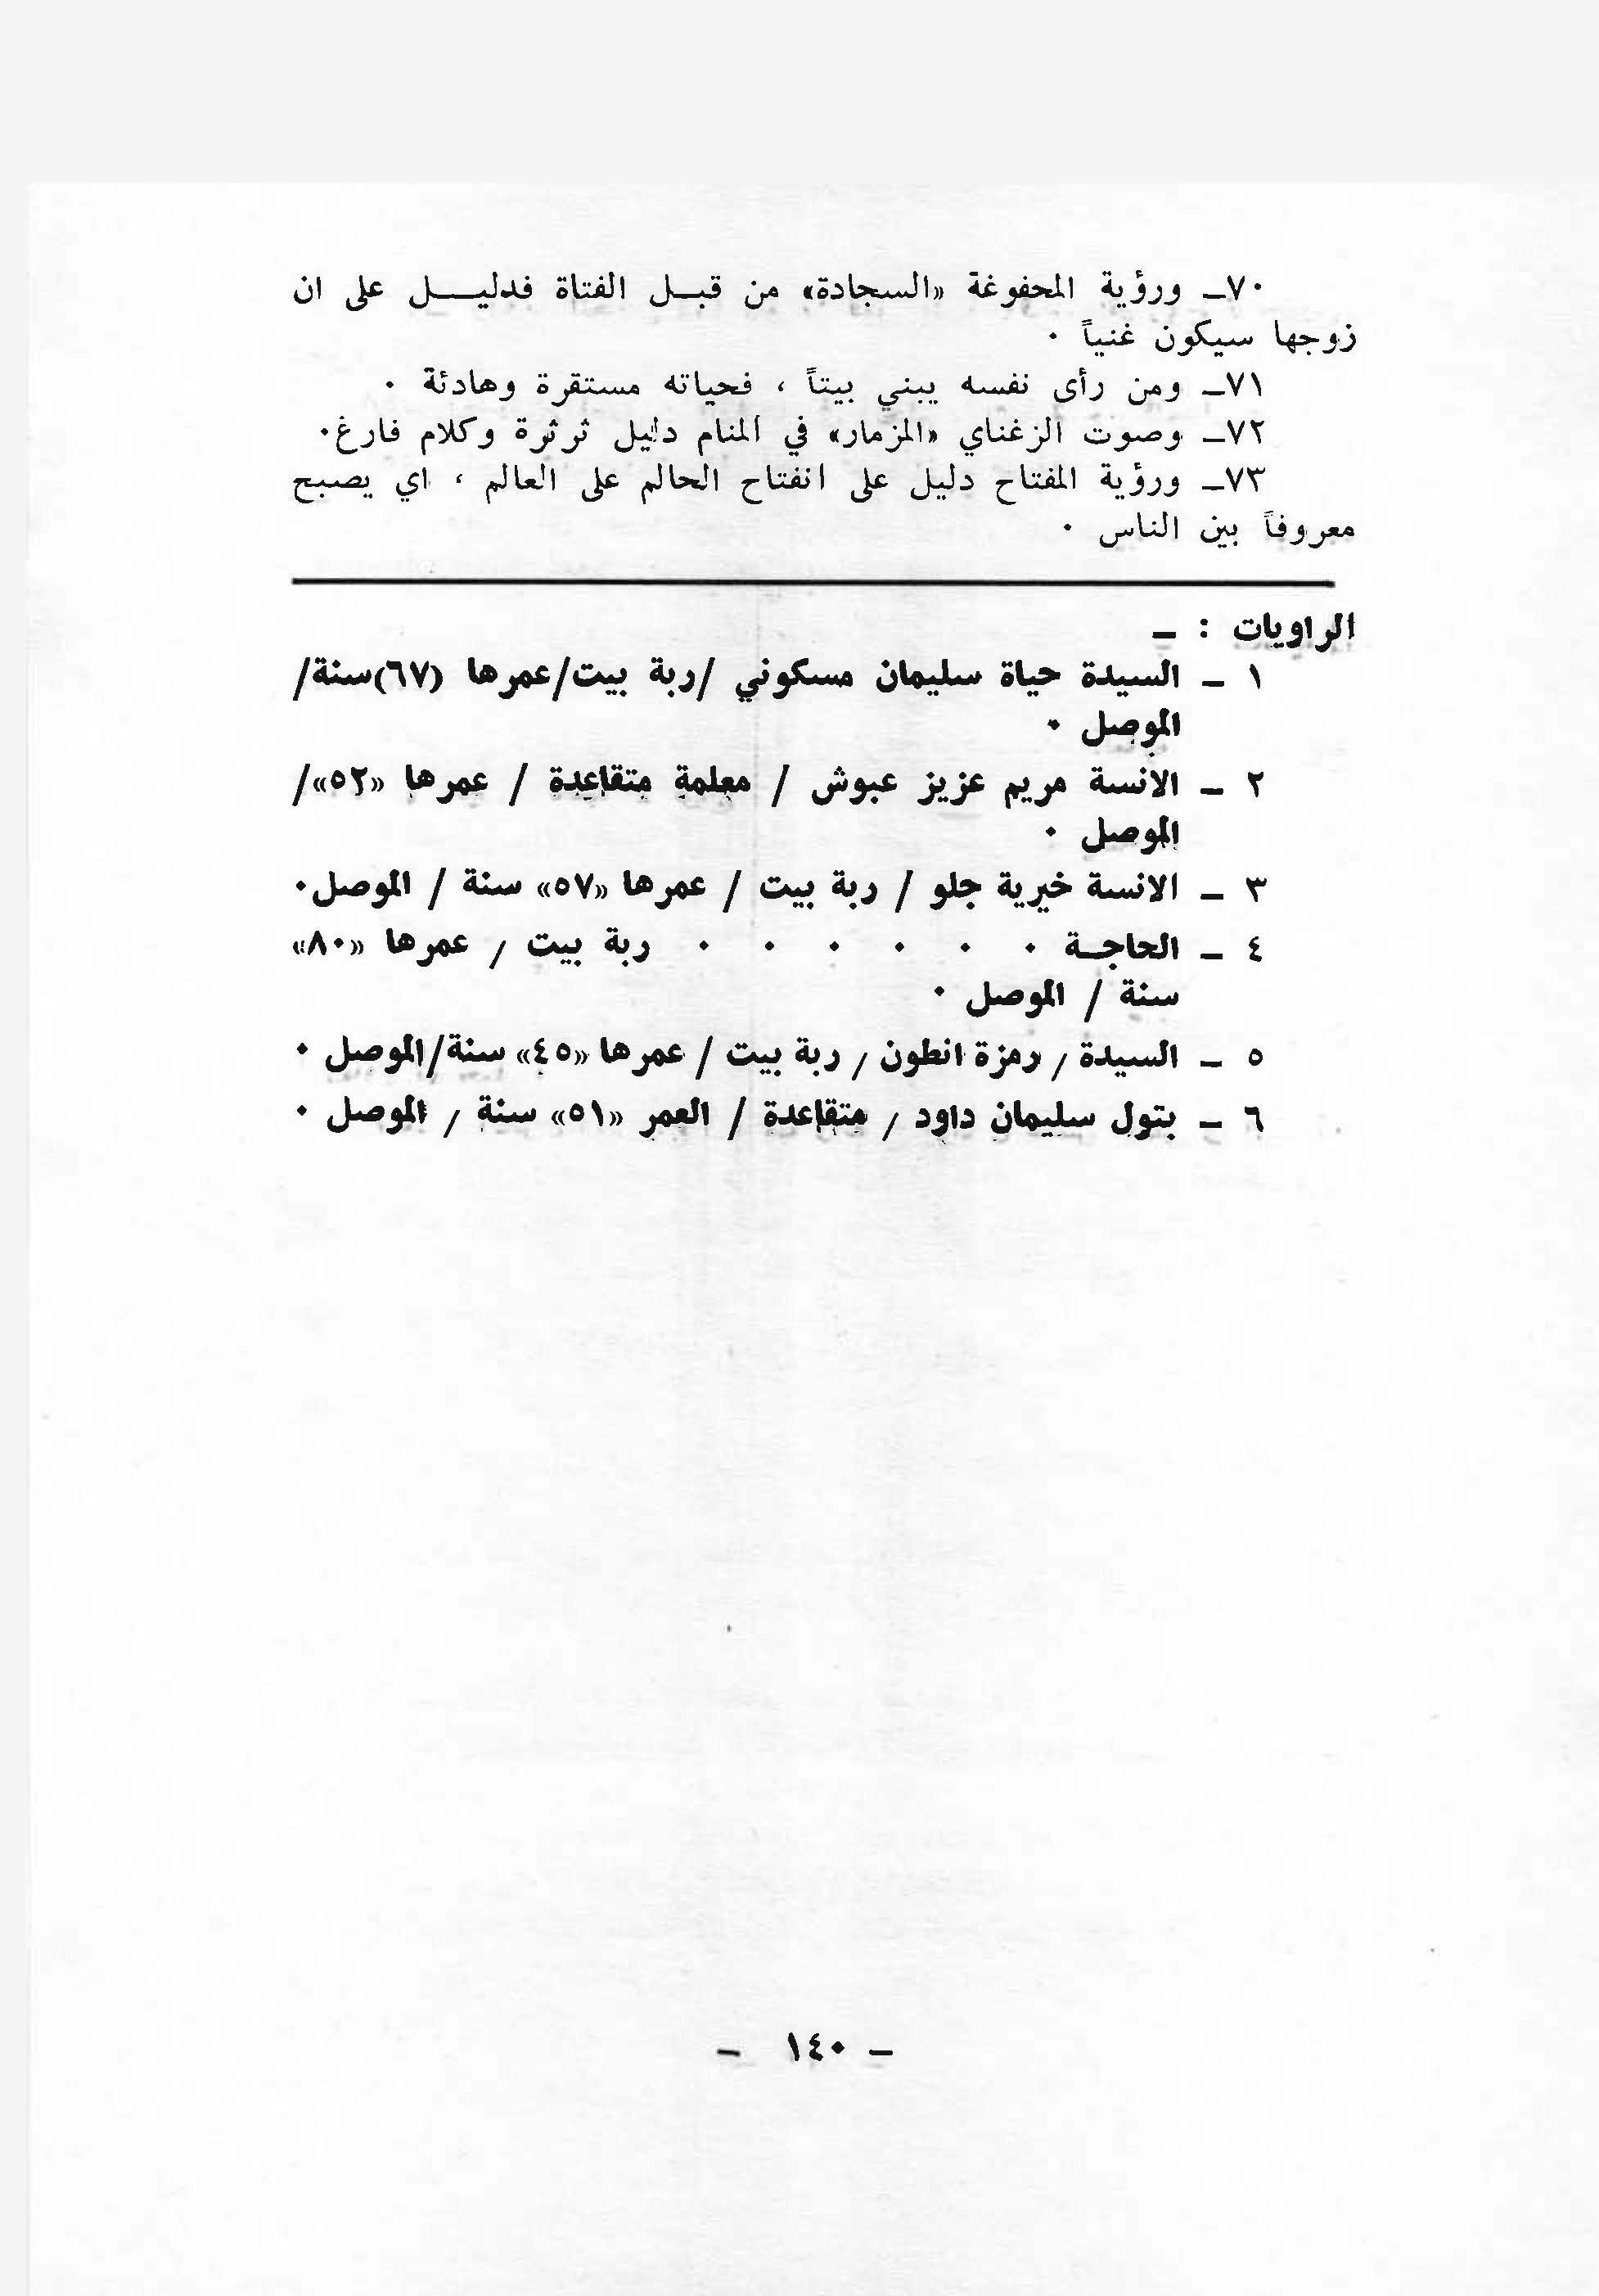 ٧٠ــ ورؤية المحفوغة «السجادة» من قبــل الفتاة فدليـــــل على ان
زوجها سيكون غنياً ٠
٧١ــ ومن رأى نفسه يبني بيتاً ، فحياته مستقرة وهادئة ٠
٧٢ــ وصوت الزغناي «المزمار» في المنام دليل ثرثرة وكلام فارغ٠
٧٣ــ ورؤية المفتاح دليل على انفتاح الحالم على العالم ، اي يصبح
معروفاً بين الناس ٠
الراويات : ــ
١ ــ السيدة حياة سليمان مسكوني /ربة بيت/عمرها (٦٧)سنة/
الموصل ٠
٢ ــ الانسة مريم عزيز عبوش / معلمة متقاعدة / عمرها «٥٢»/
الموصل ٠
٣ ــ الانسة خيرية جلو / ربة بيت / عمرها «٥٧» سنة / الموصل٠
٤ ــ الحاجــة ٠ ٠ ٠ ٠ ٠ ٠ ربة بيت / عمرها «٨٠»
سنة / الموصل ٠
٥ ــ السيدة / رمزة انطون / ربة بيت / عمرها «٤٥» سنة/الموصل ٠
٦ ــ بتول سليمان داود / متقاعدة / العمر «٥١» سنة / الموصل ٠
ــ ١٤٠ ــ